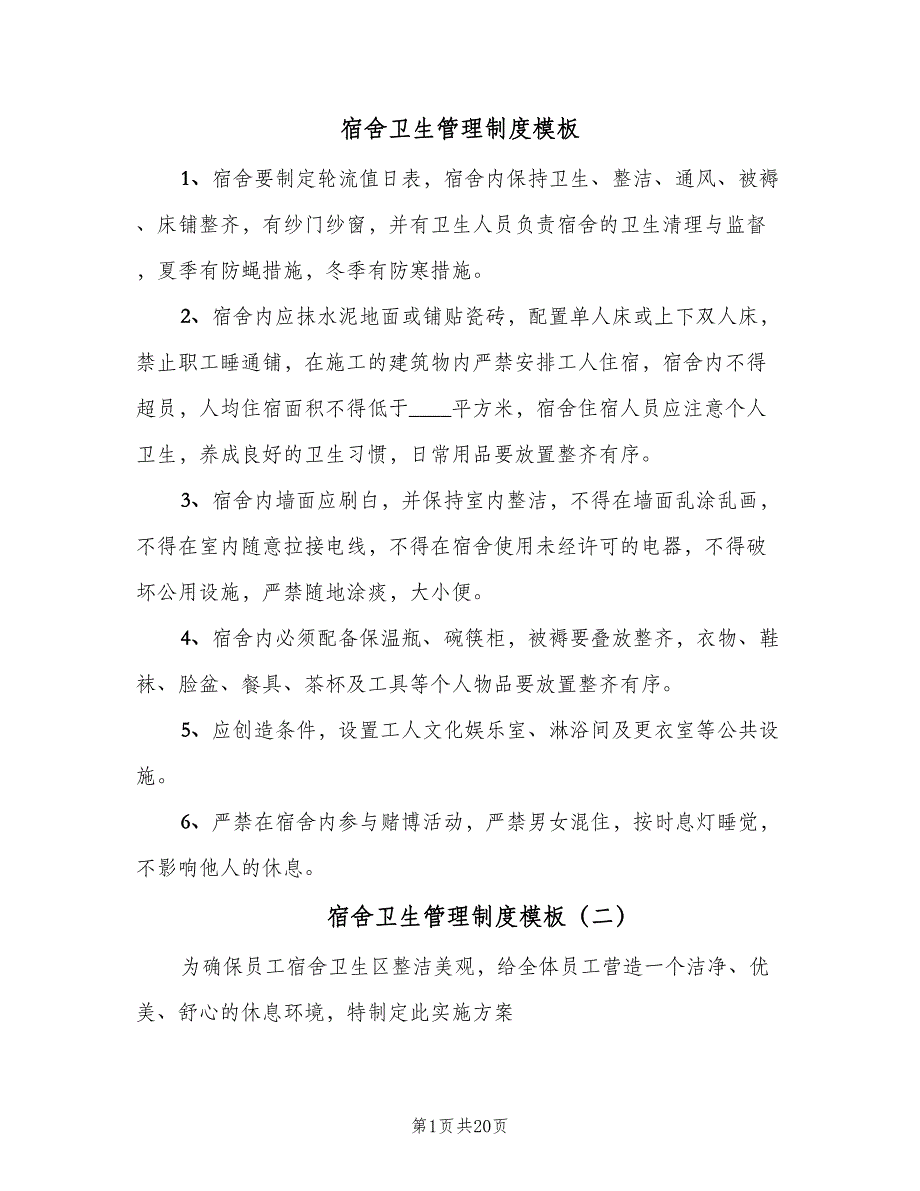 宿舍卫生管理制度模板
1、宿舍要制定轮流值日表，宿舍内保持卫生、整洁、通风、被褥
、床铺整齐，有纱门纱窗，并有卫生人员负责宿舍的卫生清理与监督
，夏季有防蝇措施，冬季有防寒措施。
2、宿舍内应抹水泥地面或铺贴瓷砖，配置单人床或上下双人床，
禁止职工睡通铺，在施工的建筑物内严禁安排工人住宿，宿舍内不得
超员，人均住宿面积不得低于____平方米，宿舍住宿人员应注意个人
卫生，养成良好的卫生习惯，日常用品要放置整齐有序。
3、宿舍内墙面应刷白，并保持室内整洁，不得在墙面乱涂乱画，
不得在室内随意拉接电线，不得在宿舍使用未经许可的电器，不得破
坏公用设施，严禁随地涂痰，大小便。
4、宿舍内必须配备保温瓶、碗筷柜，被褥要叠放整齐，衣物、鞋
袜、脸盆、餐具、茶杯及工具等个人物品要放置整齐有序。
5、应创造条件，设置工人文化娱乐室、淋浴间及更衣室等公共设
施。
6、严禁在宿舍内参与赌博活动，严禁男女混住，按时息灯睡觉，
不影响他人的休息。
宿舍卫生管理制度模板（二）
为确保员工宿舍卫生区整洁美观，给全体员工营造一个洁净、优
美、舒心的休息环境，特制定此实施方案
第1页共20页